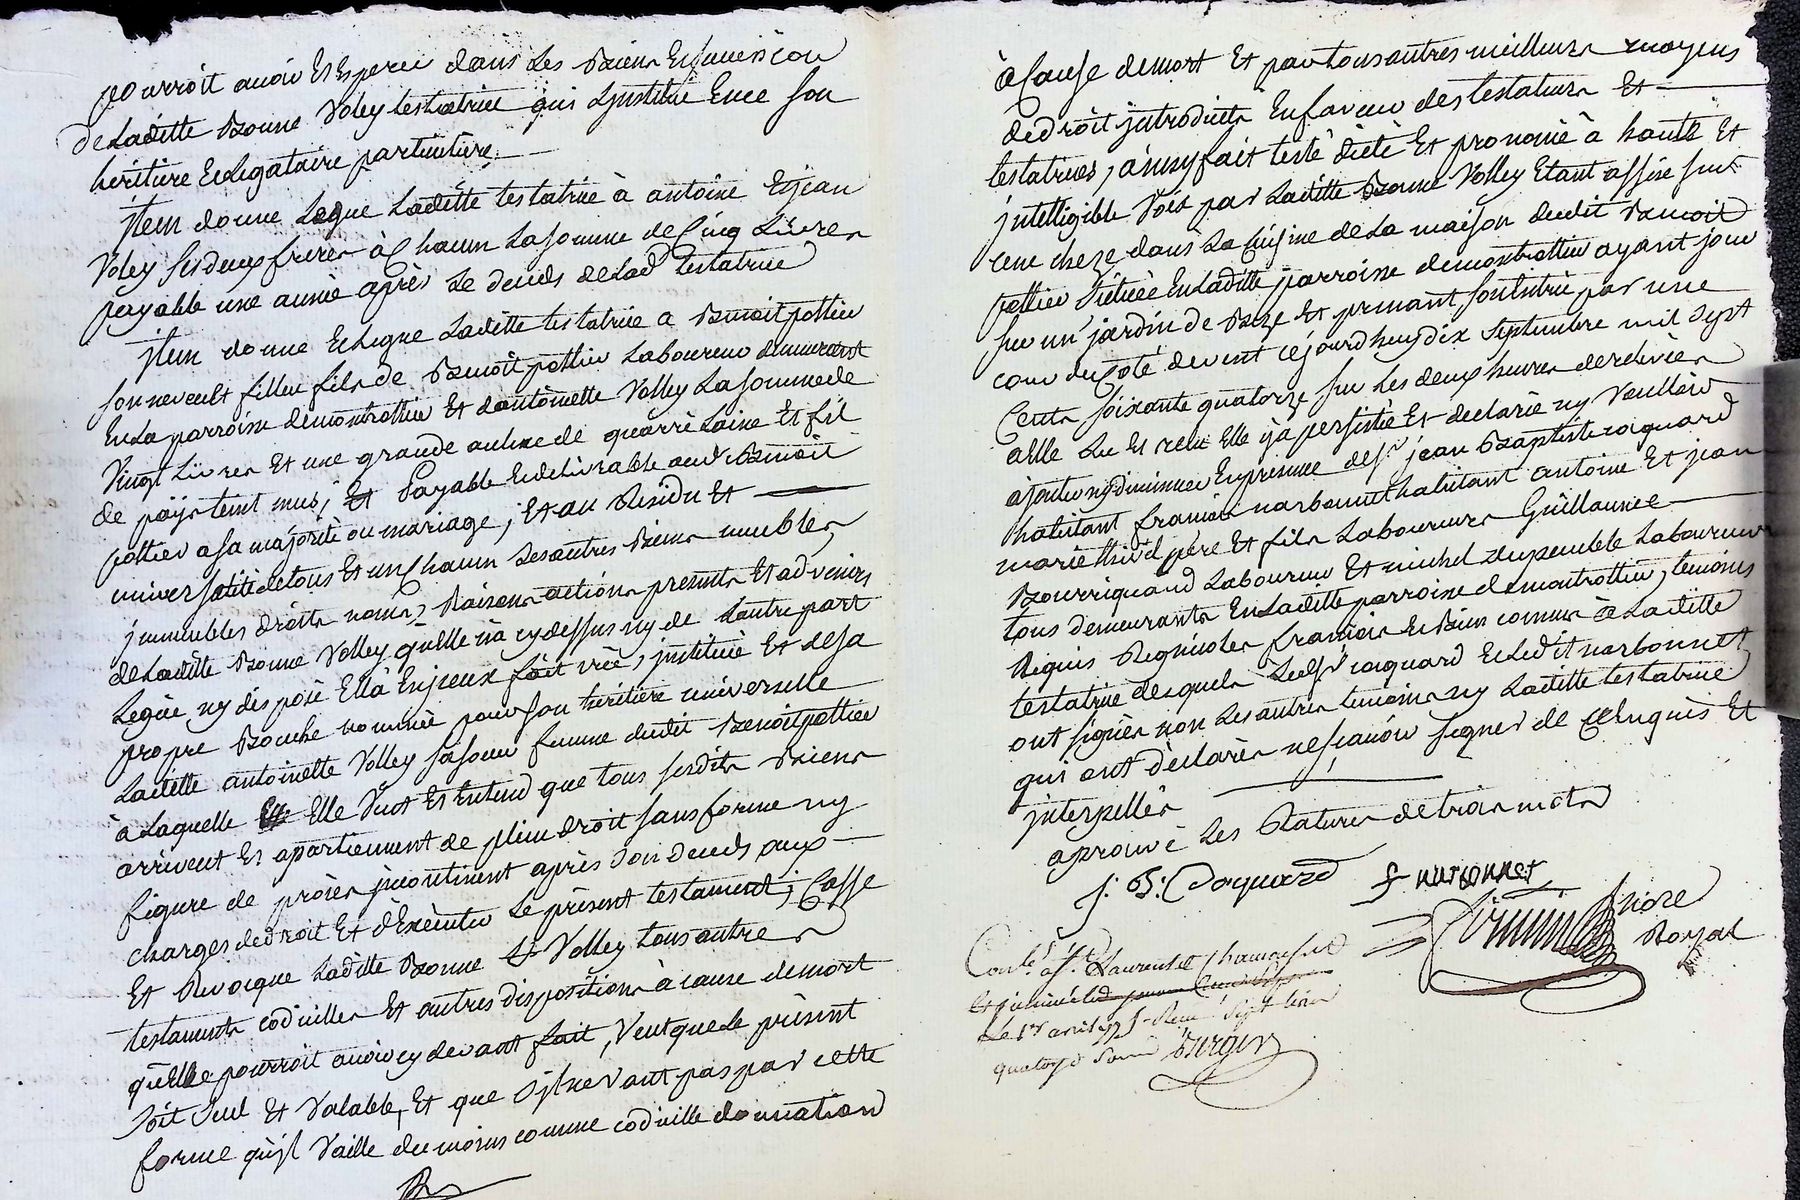 pourroit avoir Et Esperer dans Les Biens Et succession
de Laditte Bonne Voley testatrice qui L'institüe Ence son
héritiere Et Legataire particuliere.
jtem donne Legue Laditte testatrice à antoine Et jean
Voley ses deux freres à Chacun La somme de Cinq Livres
payable une année après Le deceds de Lad.e testatrice
jtem donne Et Legue Laditte testatrice a Benoit pottier
son neveu et filleu fils de Benoît pottier Laboureur demeurant
En La parroisse de montrottier Et d'antoinette Volley La somme de
Vingt Livres Et une grande aulne de quarré Laine Et fil
de païs teint mus; Et Payable Et delivrable aud. Benoit
pottier a sa majorité ou mariage; Et au Residu Et
universalité de tous Et un Chacun Ses autres Biens meubles,
jmmeubles droits noms, Raisons actions presents Et advenirs
de Laditte Bonne Volley qu'elle n'a cy dessus ny de L'autre part
Legüé ny disposé Ella Enjceux fait créé, jnstitüé Et de sa
propre Bouche nommée pour son héritiere universelle
Laditte antoinette Volley sa soeur femme dudit Benoit pottier
à Laquelle Elle Veut Et Entend que tous sesdits Biens
arrivent Et apartiennent de plein droit sans forme ny
figure de procès jncontinent après Son deceds aux
charges de droit Et d'Exécuter Le présent testament; Casse
Et Revocque Ladite Bonne Volley tous autres
testaments codicilles Et autres dispositions à cause de mort
qu'Elle pourroit avoir cy devant fait, Veut que Le présent
soit Seul Et Valable, Et que S'jl ne Vaut pas par cette
forme qu'jl Vaille du moins comme codicille donnation
à Cause de mort Et par tous autres meilleurs moyens
de droit jntroduits En faveur des testateurs Et
testatrices, ainsy fait testé dicté Et prononcé à haute Et
jntelligible Voix par Laditte Bonne Volley Etant assise sur
une cheze dans La Cuisine de La maison dudit Benoit
pottier Scituée En Laditte parroisse de montrottier ayant jour
sur un jardin de Bize Et prenant son Entrée par une
cour du Coté de vent cejourd'huy dix Septembre mil Sept
Cents soixante quatorze sur Les deux heures de relevées
a Elle Lu Et relu Elle y a persistée Et declarée ny Voulloir
ajouter ny diminuer En presence de S.r jean Baptiste coquard
habitant françois narbonnet habitant antoine Et jean
marie thivel père Et fils Laboureurs Guïllaume
Bourriquand Laboureur Et michel dupeuble Laboureur
tous demeurants En Laditte parroisse de montrottier, temoins
Requis Regnicoles françois Et Bien connus a Laditte
testatrice desquels Ledit S.r coquard Et Ledit narbonnet
ont signés non Les autres temoins ny Laditte testatrice
qui ont déclarés ne sçavoir signer de ce Enquis Et
jnterpellés
aprouvé Les Ratures de trois mots
J: B: Coquard f narbonnet
Nore
Royal
Conlé à St Laurent de Chamousset
Le 1er avril 1775 Reçu Sept Livres
quatorze Sous